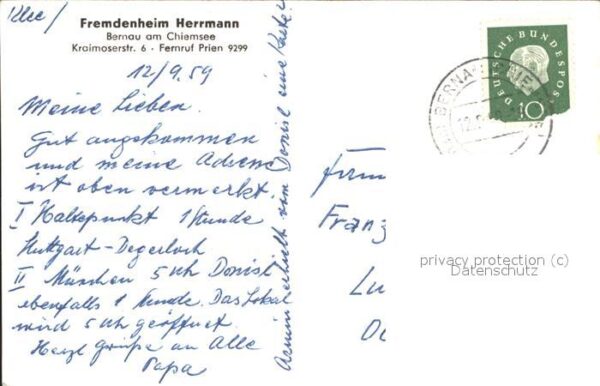 Klee/
Fremdenheim Herrmann
Bernau am Chiemsee
Kraimoserstr. 6 · Fernruf Prien 9299
12/9.59
Meine Lieben.
Gut angekommen
und meine Adresse
ist oben vermerkt.
I Haltepunkt 1 Stunde
Stuttgart-Degerloch
II München 5 Uhr Donisl
ebenfalls 1 Stunde. Das Lokal
wird 5 Uhr geöffnet.
Herzl grüße an Alle
Papa
Armin erhielt vom Donisl eine Karte
DEUTSCHE BUNDESPOST
10
BERNAU
Franz
privacy protection (c)
Datenschutz